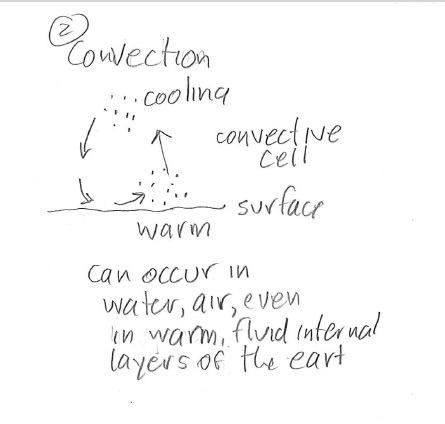 2
Convection
cooling
convective
cell
surface
warm
can occur in
water, air, even
in warm, fluid internal
layers of the eart